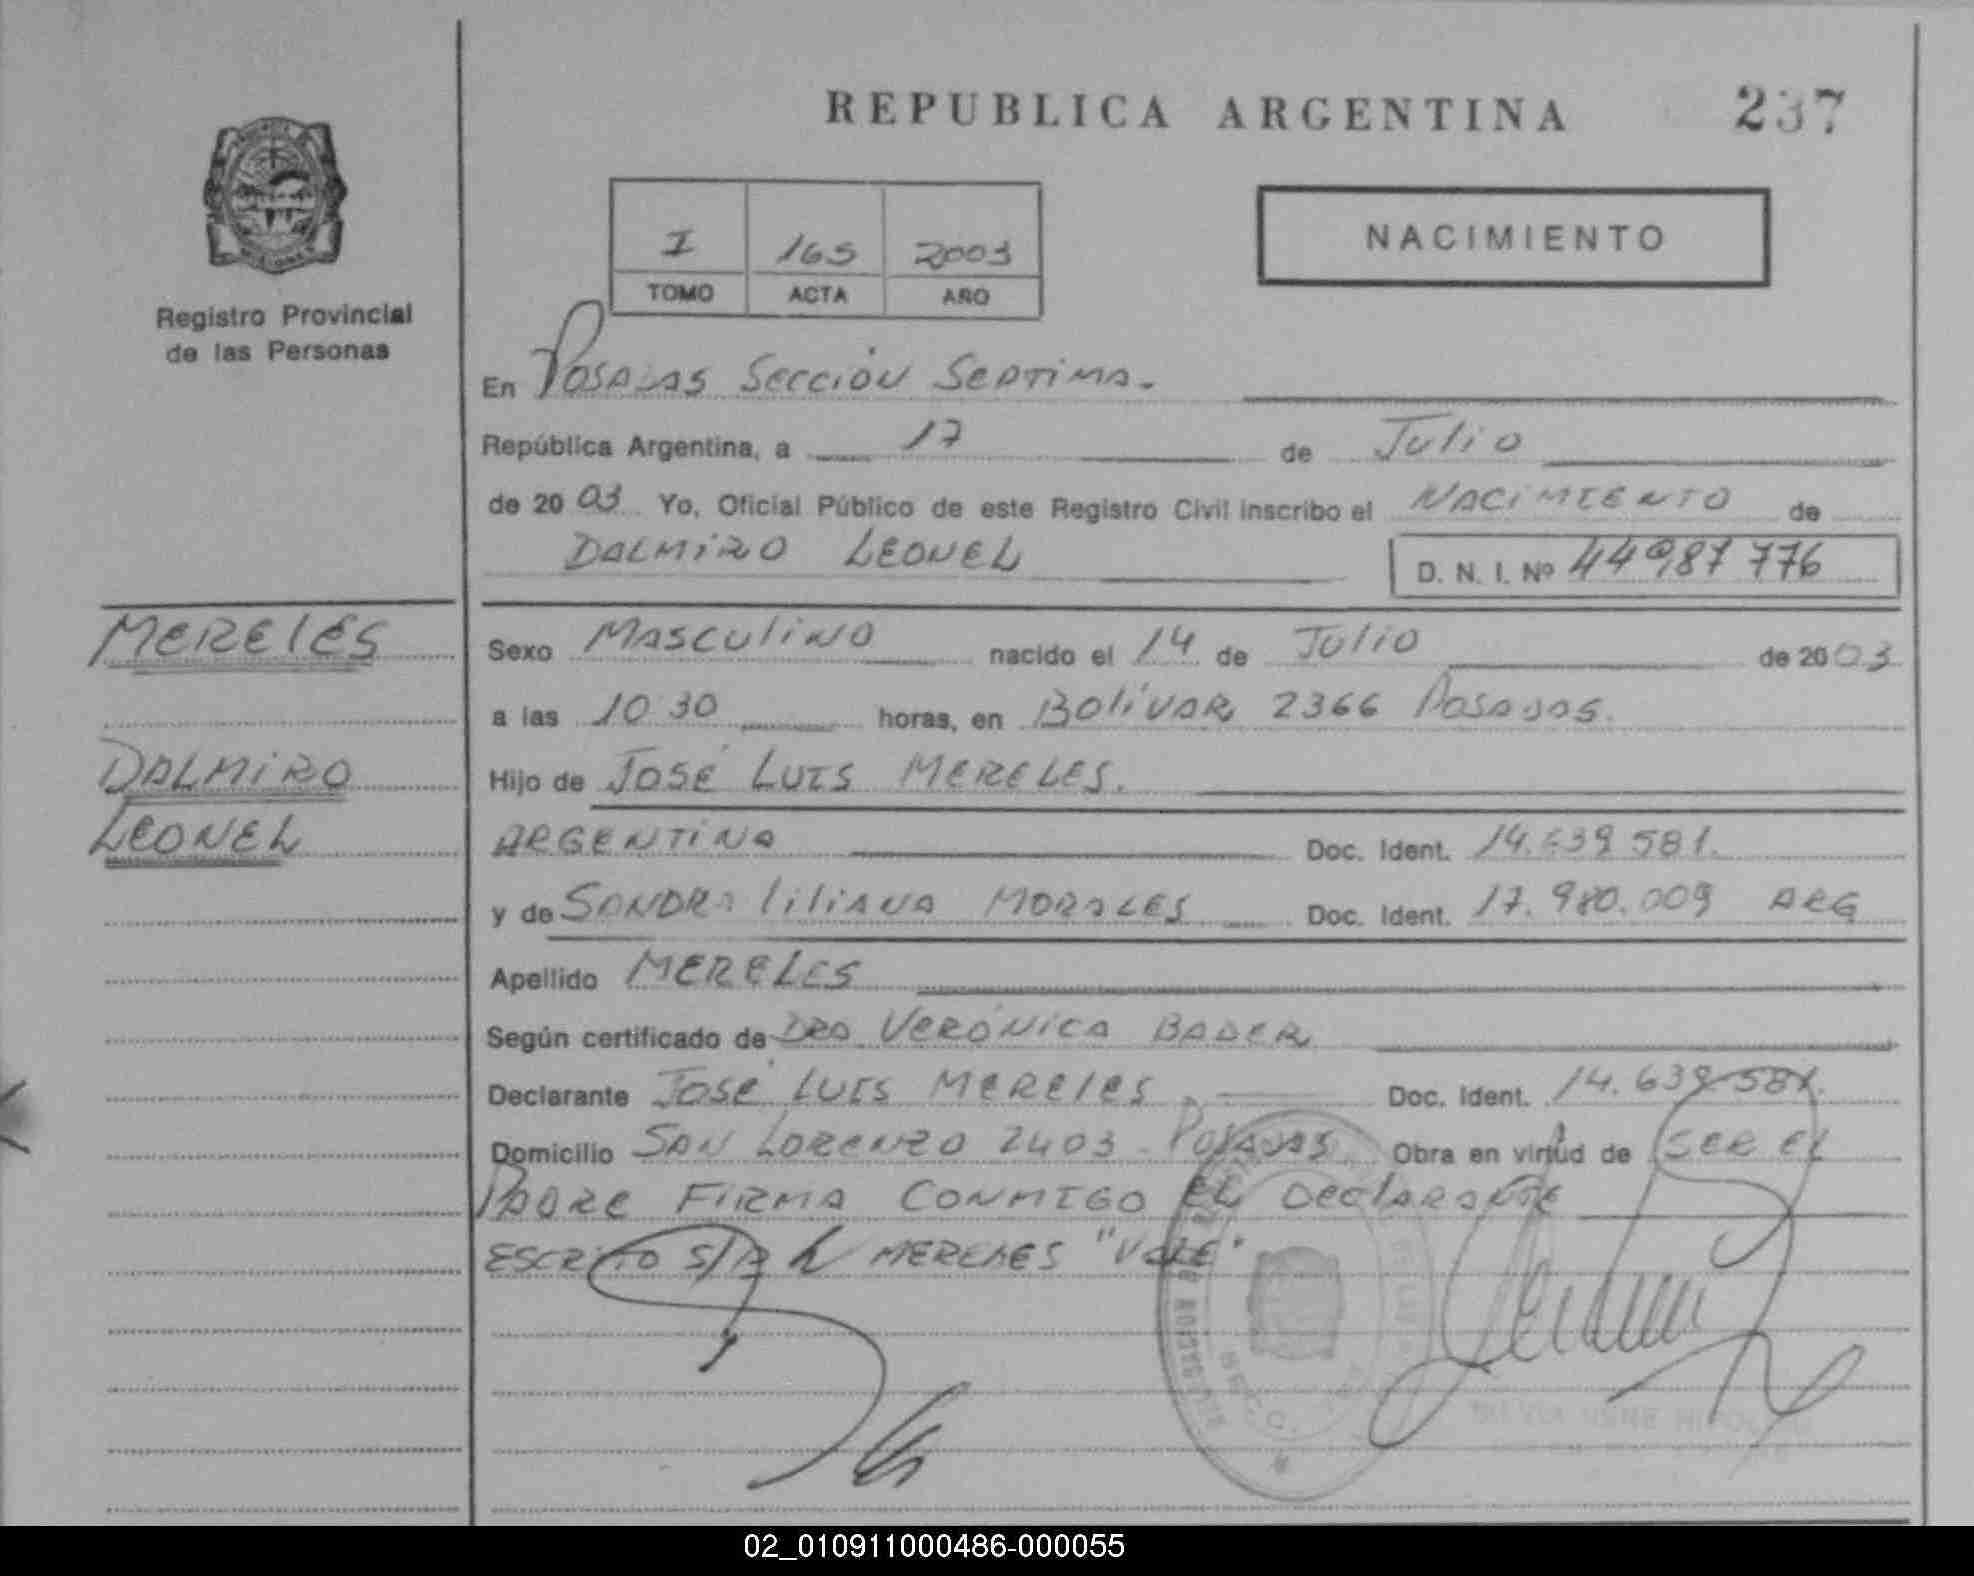 REPUBLICA ARGENTINA 237
I 165 2003
TOMO ACTA AÑO
NACIMIENTO
Registro Provincial
de las Personas
En Posadas Sección Septima.
República Argentina, a 17 de Julio
de 2003 Yo, Oficial Público de este Registro Civil inscribo el NACIMIENTO de
DALMIRO LEONEL D. N. I. Nº 44987776
MERELES
DALMIRO
LEONEL
Sexo MASCULINO nacido el 14 de Julio de 2003
a las 10 30 horas, en Bolívar 2366 Posadas.
Hijo de José Luis MERELES.
ARGENTINA Doc. Ident. 14.639 581.
y de SANDRA liliANA MORALES Doc. Ident. 17.980.009 ARG
Apellido MERELES
Según certificado de DRA VERÓNICA BADER
Declarante José Luis Mereles Doc. Ident. 14.639 581.
Domicilio SAN LORENZO 2403 - Posadas Obra en virtud de SER EL
PADRE FIRMA CONMIGO EL DEClARANTE
ESCRITO S/R L MERELES "VALE"
02_010911000486-000055